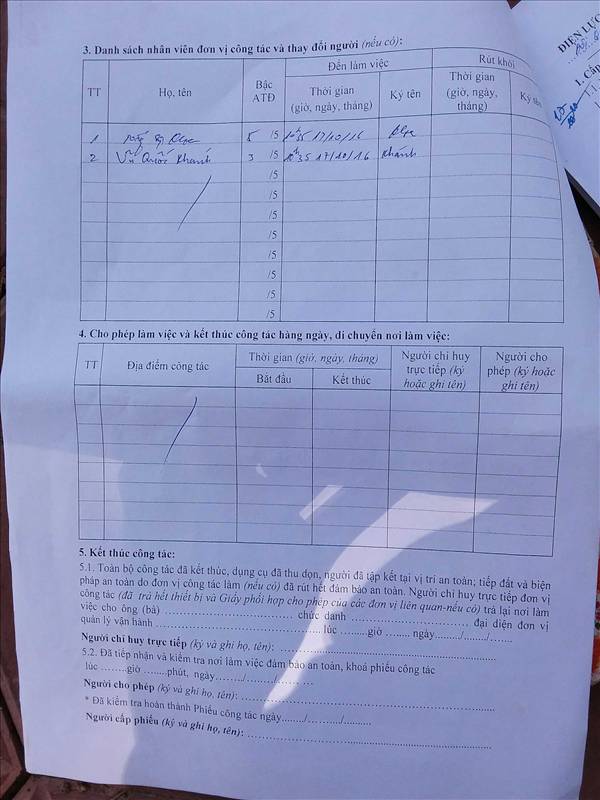 3. Danh sách nhân viên đơn vị công tác và thay đổi người (nếu có):
TT
Họ, tên
Bậc
ATĐ
Đến làm việc
Rút khỏi
Thời gian
(giờ, ngày, tháng)
Ký tên
Thời gian
(giờ, ngày,
tháng)
Ký tên
1 5 /5 17/10/16
2 Vũ Quốc Khánh 3 /5 10h35 17/10/16 Khánh
/5
/5
/5
/5
/5
/5
/5
/5
4. Cho phép làm việc và kết thúc công tác hàng ngày, di chuyển nơi làm việc:
TT
Địa điểm công tác
Thời gian (giờ, ngày, tháng)
Bắt đầu
Kết thúc
Người chỉ huy
trực tiếp (ký
hoặc ghi tên)
Người cho
phép (ký hoặc
ghi tên)
5. Kết thúc công tác:
5.1. Toàn bộ công tác đã kết thúc, dụng cụ đã thu dọn, người đã tập kết tại vị trí an toàn; tiếp đất và biện
pháp an toàn do đơn vị công tác làm (nếu có) đã rút hết đảm bảo an toàn. Người chỉ huy trực tiếp đơn vị
công tác (đã trả hết thiết bị và Giấy phối hợp cho phép của các đơn vị liên quan-nếu có) trả lại nơi làm
việc cho ông (bà) ........................ chức danh ........................ đại diện đơn vị
quản lý vận hành ........................ lúc ........giờ ........ ngày......../......../.......
Người chỉ huy trực tiếp (ký và ghi họ, tên): ........................
5.2. Đã tiếp nhận và kiểm tra nơi làm việc đảm bảo an toàn, khoá phiếu công tác
lúc ........giờ ........phút, ngày......../......../.......
Người cho phép (ký và ghi họ, tên): ........................
* Đã kiểm tra hoàn thành Phiếu công tác ngày......../......../.........
Người cấp phiếu (ký và ghi họ, tên): ........................
ĐIỆN LỰC
1. Cấp